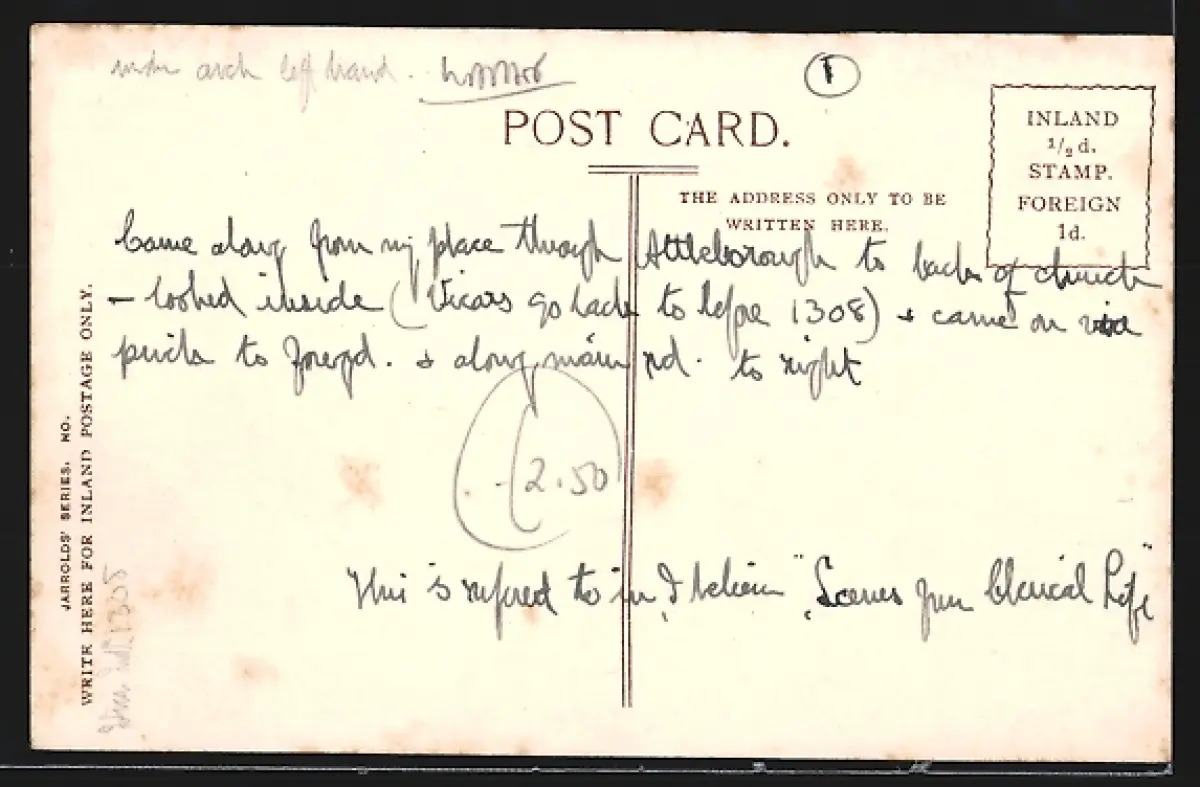 arch left hand.
1
POST CARD.
INLAND
1/2 d.
STAMP.
FOREIGN
1d.
THE ADDRESS ONLY TO BE
WRITTEN HERE.
Came along from my place through Attleborough to back of church
- looked inside (Vicars go back to before 1308) & came on via
path to foregd. & along main rd. to right
2.50
This is refered to in, I believe "Scenes from Clerical Life"
JARROLDS' SERIES. NO.
WRITE HERE FOR INLAND POSTAGE ONLY.